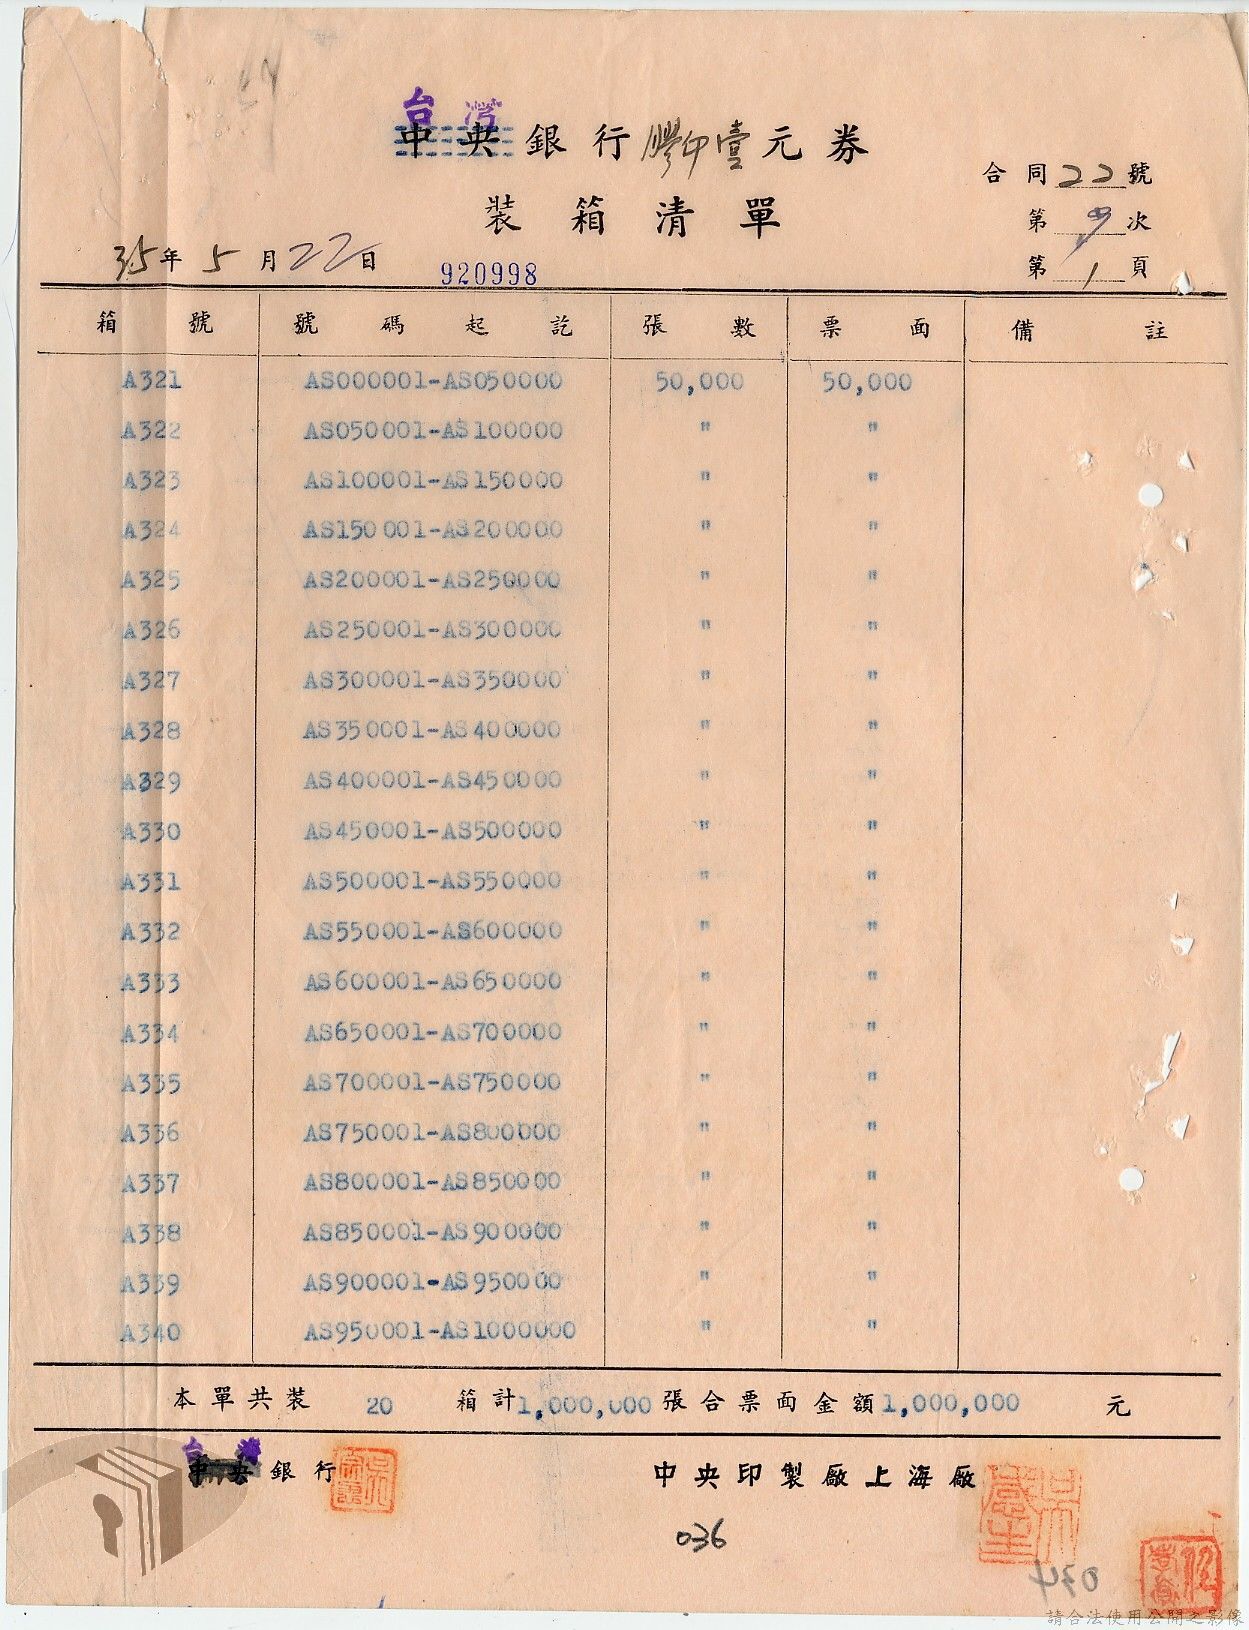 台灣
中央銀行膠印壹元券
合同22號
裝箱清單
第9次
35年5月22日
920998
第1頁
箱號 號碼起訖 張數 票面 備註
A321 AS000001-AS050000 50,000 50,000
A322 AS050001-AS100000 " "
A323 AS100001-AS150000 " "
A324 AS150001-AS200000 " "
A325 AS200001-AS250000 " "
A326 AS250001-AS300000 " "
A327 AS300001-AS350000 " "
A328 AS350001-AS400000 " "
A329 AS400001-AS450000 " "
A330 AS450001-AS500000 " "
A331 AS500001-AS550000 " "
A332 AS550001-AS600000 " "
A333 AS600001-AS650000 " "
A334 AS650001-AS700000 " "
A335 AS700001-AS750000 " "
A336 AS750001-AS800000 " "
A337 AS800001-AS850000 " "
A338 AS850001-AS900000 " "
A339 AS900001-AS950000 " "
A340 AS950001-AS1000000 " "
本單共裝 20 箱計1,000,000張合票面金額1,000,000 元
台灣
中央銀行 中央印製廠上海廠
036
034
請合法使用公開之影像